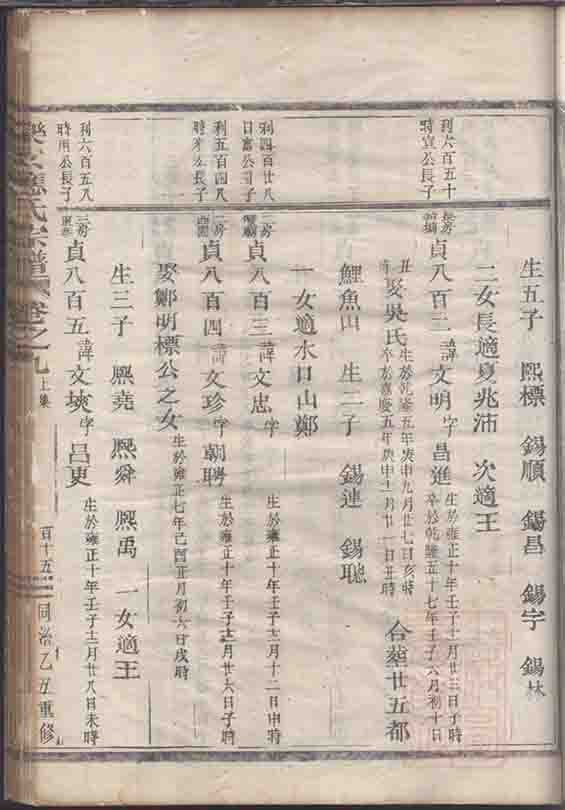 生五子 熙標 錫順 錫昌 錫宇 錫林
二女長適夏兆沛 次適王
利六百五十
時宣公長子
貞八百二 諱文明 字昌進 生於雍正十年壬子十一月廿三日子時 卒於乾隆五十七年壬子六月初十日
丑時 娶吳氏 生於乾隆五年庚申九月廿七日亥時 卒於嘉慶五年庚申十一月廿一日丑時 合葬廿五都
鯉魚山 生二子 錫連 錫聰
一女適水口山鄭
利四百廿八
日富公 子
二房 貞八百三 諱文忠 字 生於雍正十年壬子十二月十二日申時
利五百四八
時 公長子
二房 貞八百四 諱文珍 字朝聘 生於雍正十年壬子十二月廿六日子時
娶鄭明標公之女 生於雍正七年己酉正月初六日戌時
生三子 熙堯 熙舜 熙禹 一女適王
利六百五八
時用公長子
三房 貞八百五 諱文埉 字呂更 生於雍正十年壬子十二月廿八日未時
氏宗譜 卷之九 上集 百十五 同治乙丑重修